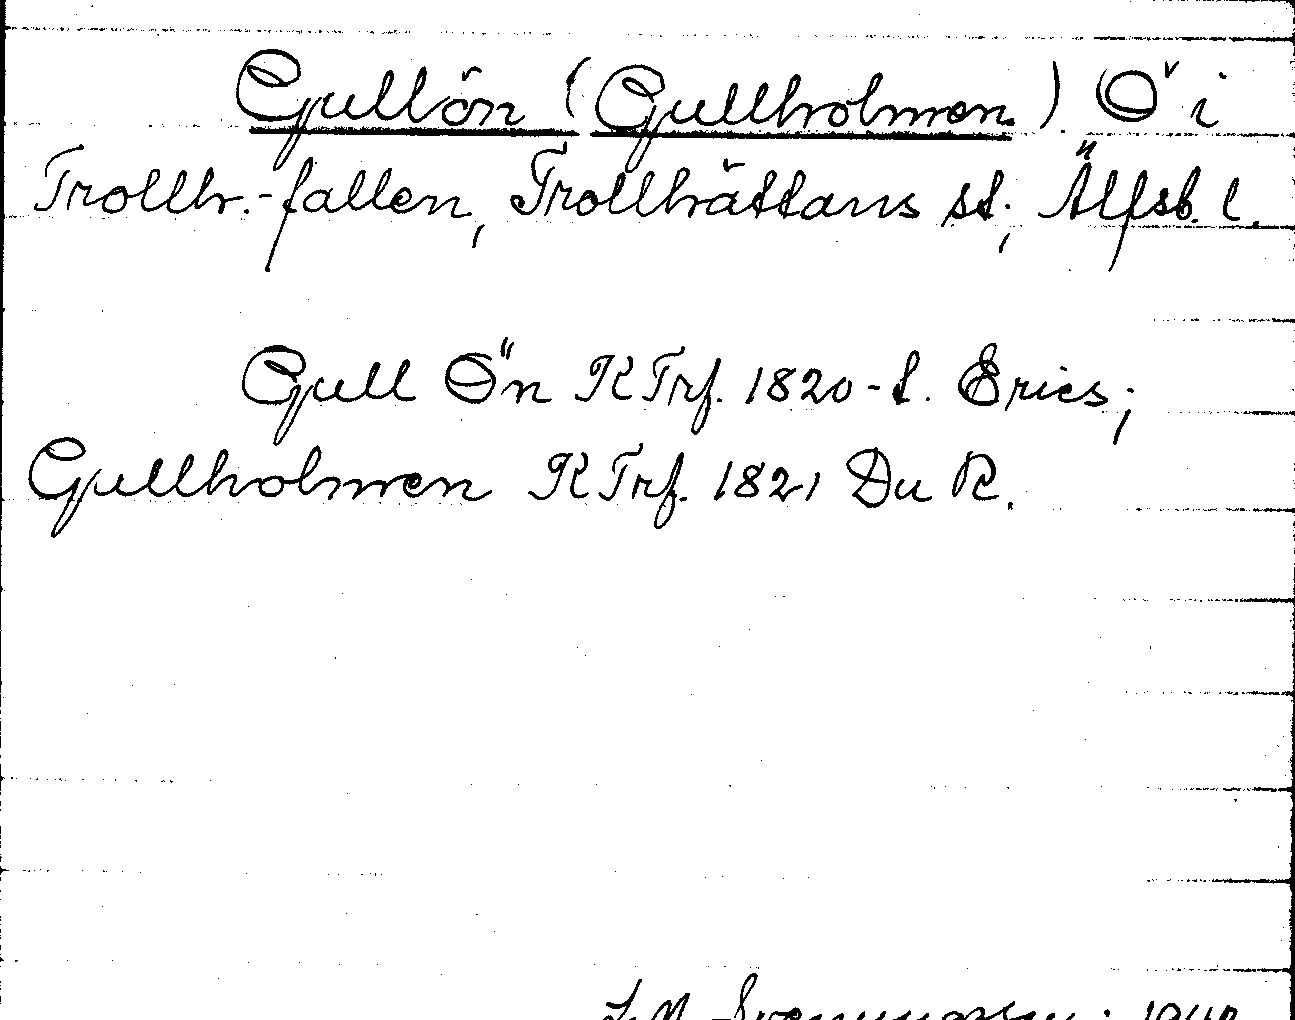 Gullön (Gullholmen) Ö i
Trollh.-fallen, Trollhättans st., Älfsb. l.
Gull Ön KTrf. 1820-t. Erics;
Gullholmen KTrf. 1821 Du R.